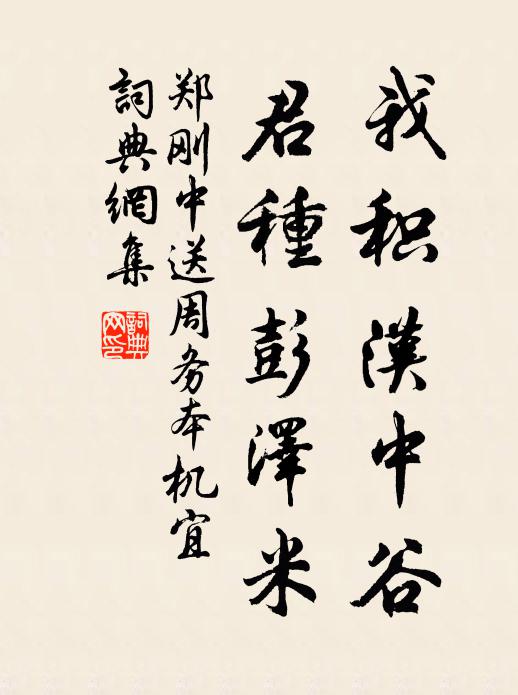 我积漢中谷
君種彭澤米
郑刚中送周务本机宜
詞典網集
詞典網印